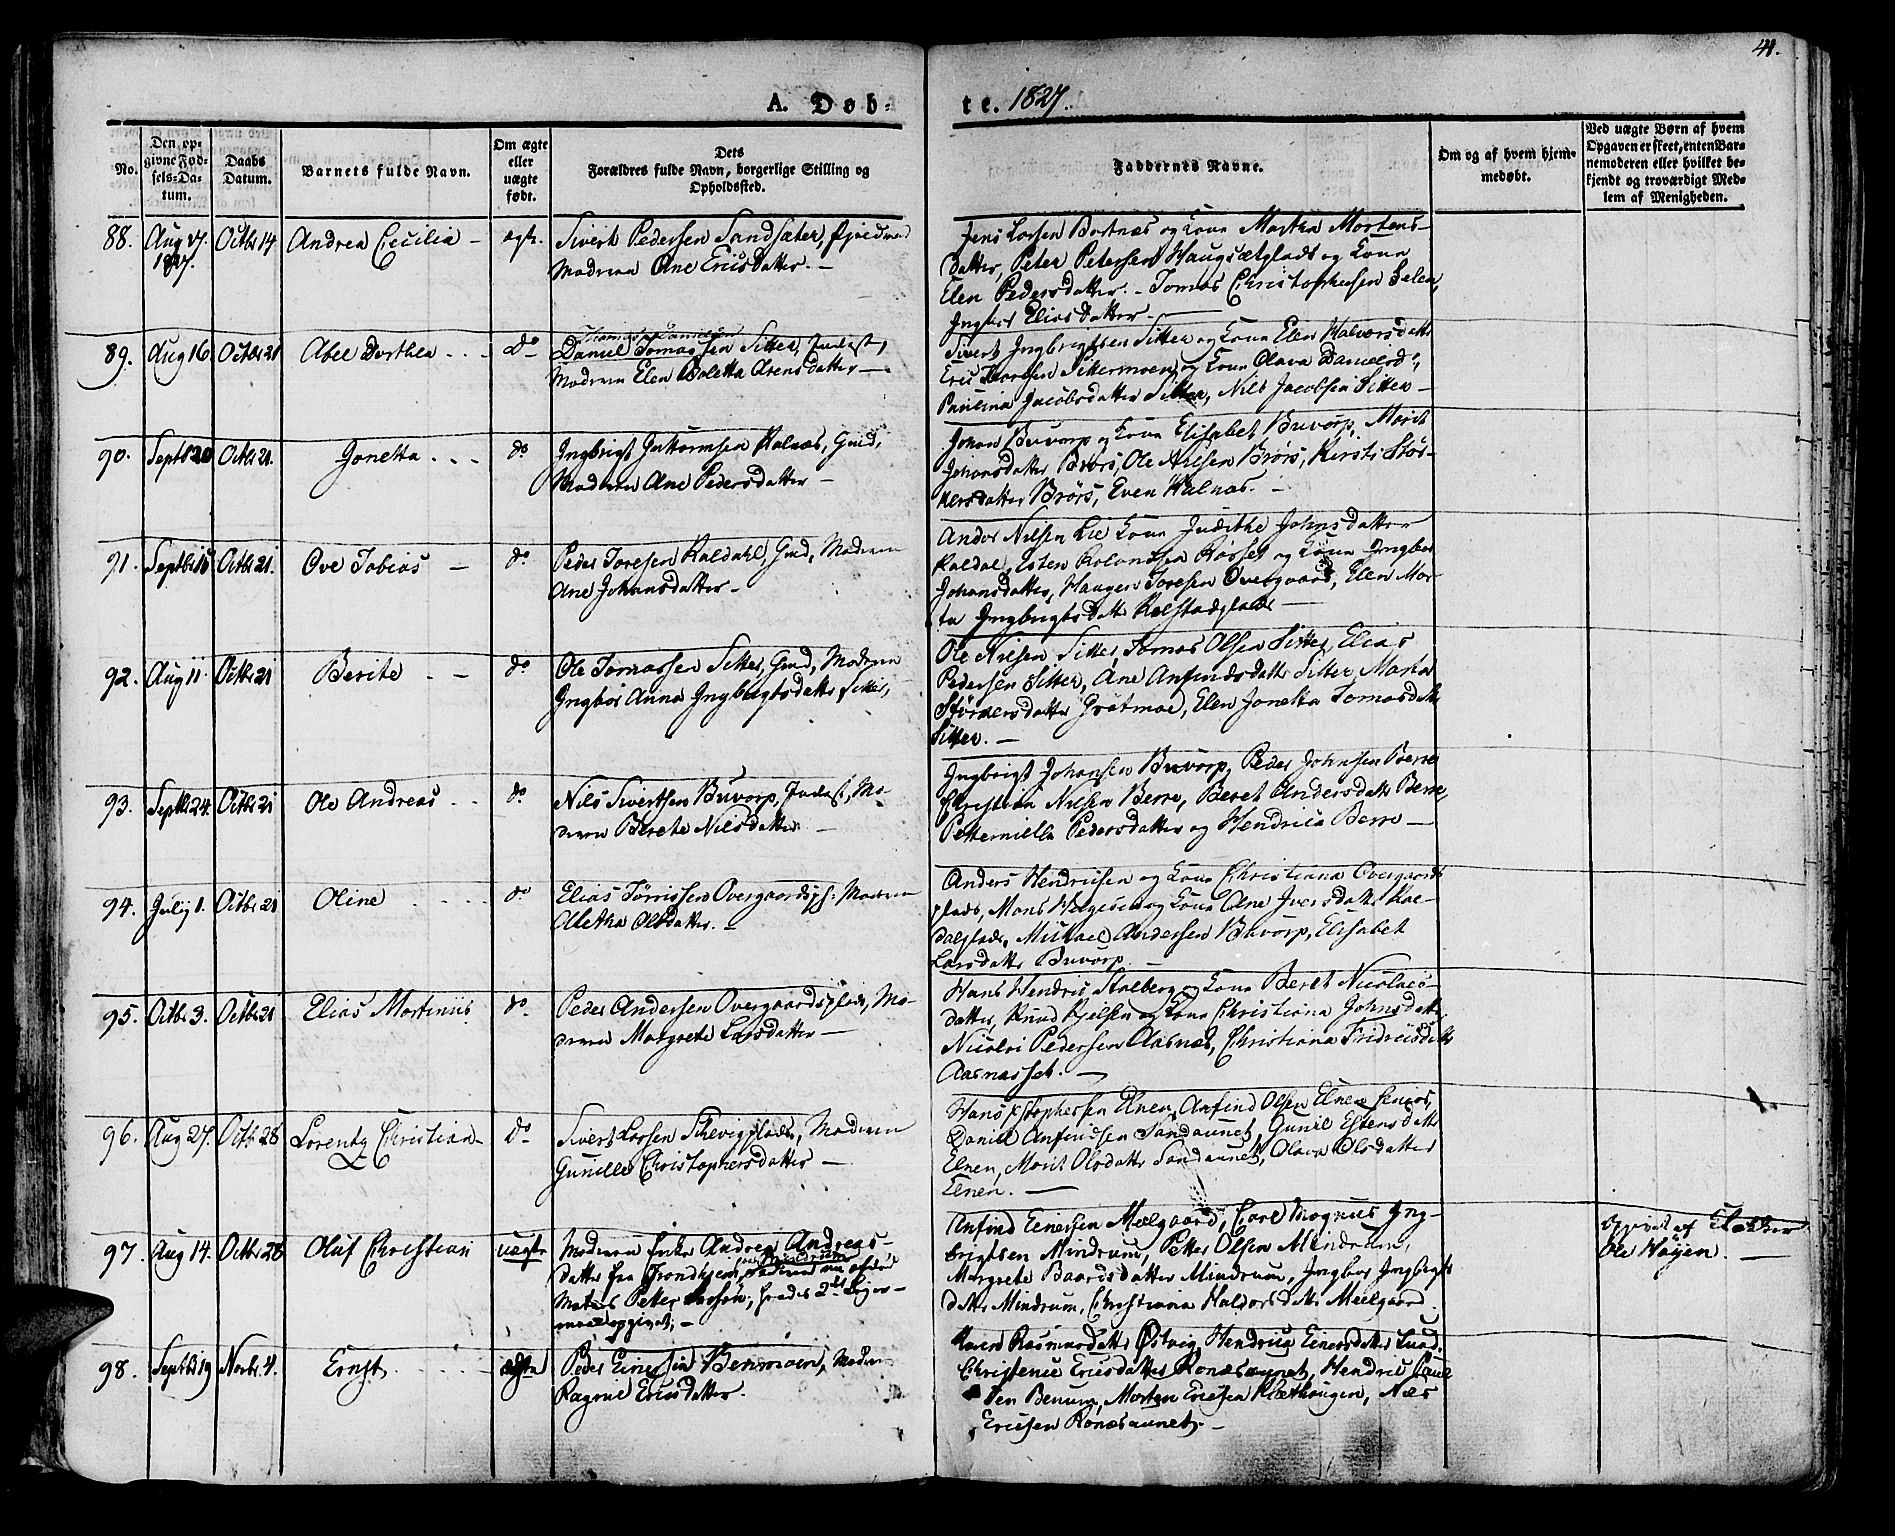 41.
A. Døb-
te. 1827.
No.
Den op-
givne Fød-
sels-Da-
tum.
Daabs
Datum.
Barnets fulde Navn.
Om ægte
eller
uægte
født.
Dets
Forældres fulde Navn, borgerlige Stilling og
Opholdssted.
Faddernes Navne.
Om og af hvem hjem-
medøbt.
Ved uægte Børn af hvem
Opgaven er skeet, enten Bar-
nemoderen eller hvilket be-
kjendt og troværdigt Med-
lem af Menigheden.
88. Aug 17. Octbr 14 Andrea Cecilia — ægt.
1827.
Sivert Pedersen Sandsæter,
Moderen Ane Ericsdatter. —
Jens Larsen Bortnæs og Kone Martha Mortens-
datter, Peter Petersen Haugsætplads og Kone
Elen Pedersdatter. — Tomas Christophersen Selen,
Ingbor Eliasdatter. —
89. Aug 16. Octbr 21 Abel Dorthea . . . do
Daniel Tomassen Sitter, Inderst,
Moderen Elen Boletta Arensdatter —
Sivert Ingbrigtsen Sitter og Kone Elen Halvorsdatt
Eric Larsen Sittermoen og Kone Olava Danielsd.,
Paulina Jacobsdatter Sitter, Nils Jacobsen Sitter —
90. Septb 20 Octbr 21. Jonetta . . . do
Ingbrigt Guttormsen Halnæs, Gmd,
Moderen Ane Pedersdatter —
Johan Buvorp og Kone Elisabet Buvorp, Marit
Johansdatter Brørs, Ole Nilsen Brørs, Kirsti Stør-
kersdatter Brørs, Even Halnæs. —
91. Septbr 15 Octbr 21. Ove Tobias — do
Peder Toresen Kaldahl, Gmd, Moderen
Ane Johansdatter —
Andor Nilsen Lie Kone Judithe Johnsdatter
Kaldal, Esten Rolandsen Røsset og Kone Ingbor
Johansdatter, Haagen Toresen Overgaard, Elen Mar-
ta Ingbrigtsdatt Kalstadplads —
92. Aug 11. Octbr 21 Berite . — do
Ole Tomassen Sitter, Gmd, Moderen
Ingbor Anna Ingbrigtsdatter Sitter,
Ole Nilsen Sitter, Tomas Olsen Sitter, Elias
Pedersen Sitter, Ane Anfindsdatt Sitter, Marta
Størkersdatter Gratmoe, Elen Jonetta Tomasdatt
Sitter. —
93. Septbr 24. Octbr 21 Ole Andreas . . do
Nils Sivertsen Buvorp, Inderst, Mo-
deren Berete Nilsdatter —
Ingbrigt Johansen Buvorp, Peder Johnsen Berre
Christian Nilsen Berre, Beret Andersdatt Berre,
Petternille Pedersdatter og Hendrica Berre —
94. July 1. Octbr 21 Oline . . . . do
Elias Tørrissen Overgaardspl: Moderen
Aletha Olsdatter. —
Anders Hendricsen og Kone Christiana Overgaards
plads, Mons Helgesen og Kone Ane Iversdatt Kal-
dalplads, Mickael Andersen Buvorp, Elisabet
Larsdatt Buvorp. —
95. Octbr 3. Octbr 21 Elias Martinus do
Peder Andersen Overgaardsplads, Mo-
deren Margrete Larsdatter —
Hans Hendric Stalberg og Kone Beret Nicolais-
datter, Knud Kjelsen og Kone Christiana Johnsdatt
Nicolai Pedersen Aasnæs, Christiana Fridricsdatt
Aasnæsset. —
96. Aug 27. Octbr 28 Lorentz Christian — do
Sivert Larsen Schevigplads, Moderen
Gunille Christophersdatter —
Hans Xstophersen Elnen, Anfind Olsen Elnen Senior,
Daniel Anfindsen Sandaunet, Gunil Estensdatt
Elnen, Marit Olsdatter Sandaunet, Olava Olsdatter
Elnen. —
97. Aug 14. Octbr 28 Oluf Christian uægte
Moderen Enke Andrea Andreas-
datter fra Trondhjem,
Petter Larsen,
opgivet; —
Anfind Einersen Melgaard, Carl Magnus Ing-
brigtsen Mindrum, Petter Olsen Mindrum,
Margrete Baardsdatter Mindrum, Ingbor Ingbrigts
datt. Mindrum, Christiana Haldorsdatt Melgaard.
Opgivet af
Ole Høyen. —
98. Septbr 19 Novbr. 4. Ernst . . . ægte
Peder Einersen Benmoen, Moder-
Ragnil Ericsdatter.
Karen Rasmusdatt Østvig, Hendrica Einersdatter Lund,
Christence Ericsdatter Ronæsaunet, Hendric Paul
sen Benum, Morten Ericsen Klæthaugen, Næs
Ericsen Ronæsaunet. —